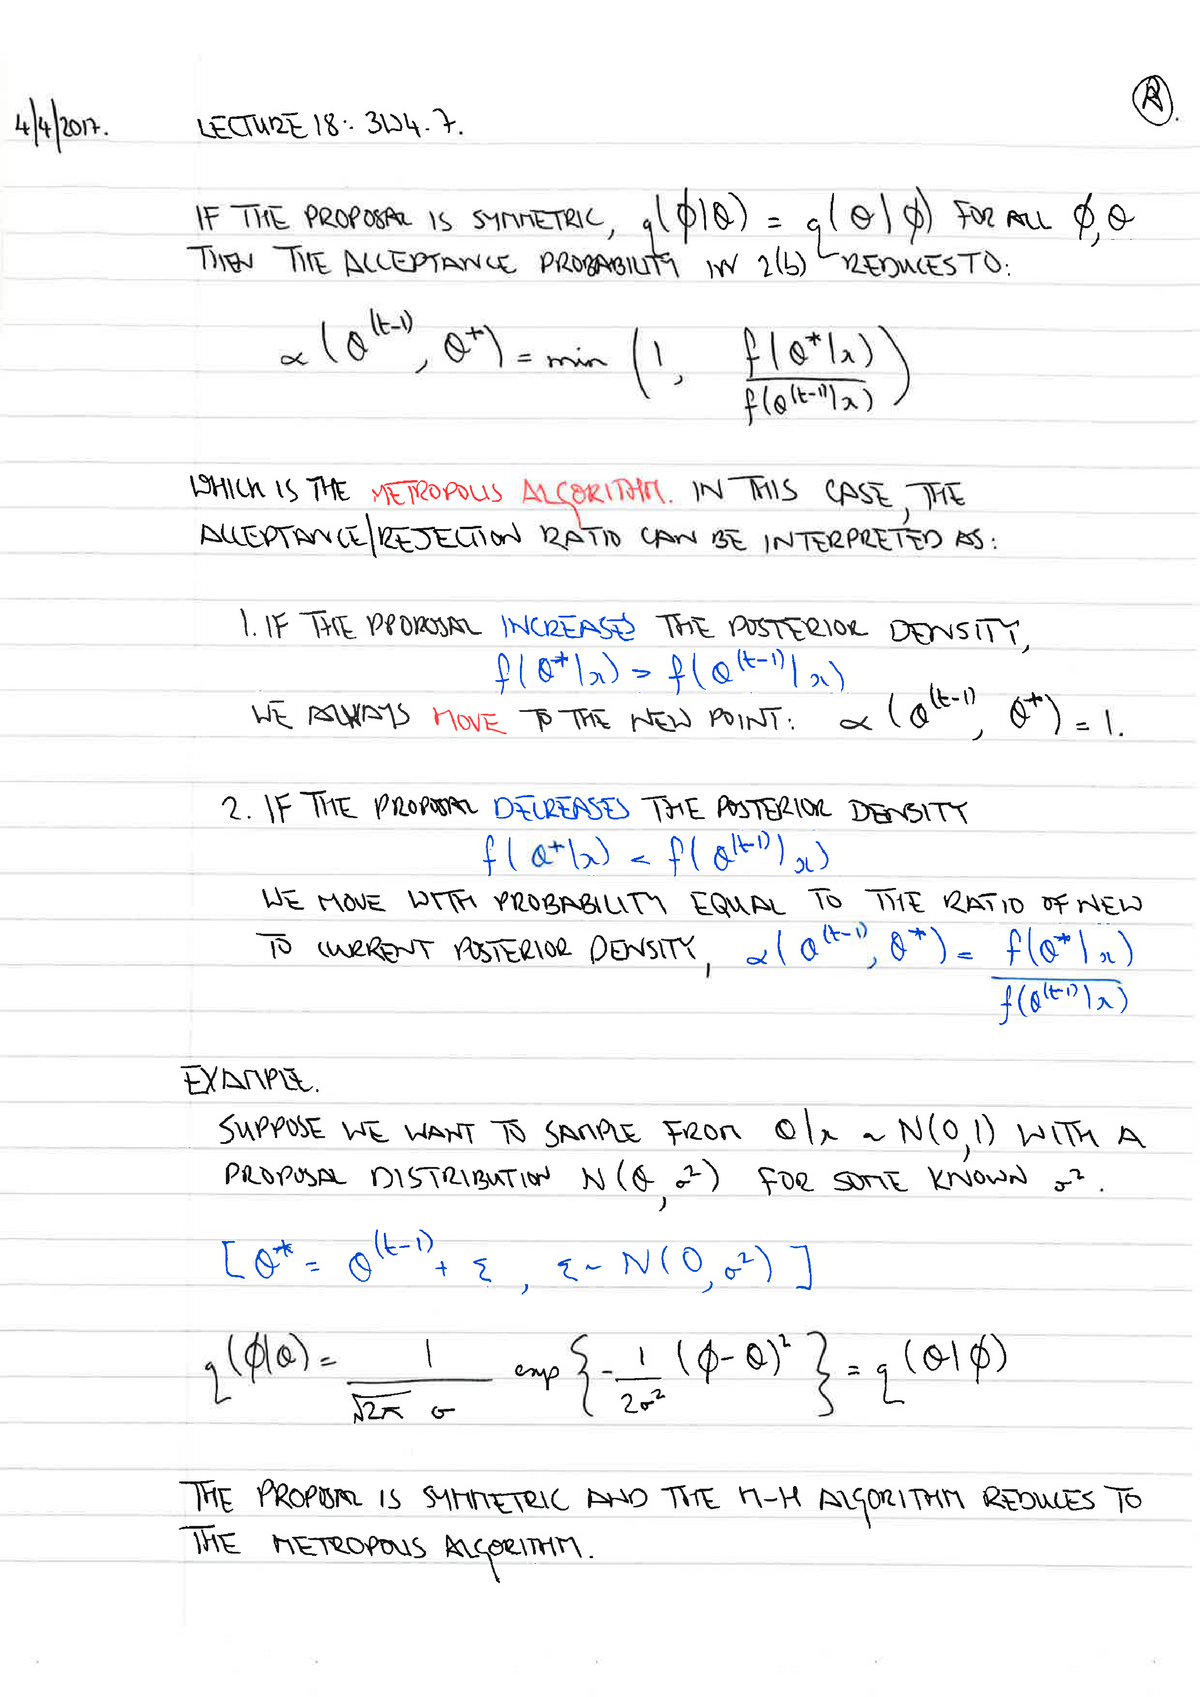 4/4/2017.
LECTURE 18: 3W4.7.
IF THE PROPOSAL IS SYMMETRIC, q(φ|θ) = q(θ|φ) FOR ALL φ, θ
THEN THE ACCEPTANCE PROBABILITY IN 2(b) REDUCES TO:
α(θ^(t-1), θ*) = min (1, f(θ*|x) / f(θ^(t-1)|x))
WHICH IS THE METROPOLIS ALGORITHM. IN THIS CASE, THE
ACCEPTANCE/REJECTION RATIO CAN BE INTERPRETED AS:
1. IF THE PROPOSAL INCREASES THE POSTERIOR DENSITY,
f(θ*|x) > f(θ^(t-1)|x)
WE ALWAYS MOVE TO THE NEW POINT: α(θ^(t-1), θ*) = 1.
2. IF THE PROPOSAL DECREASES THE POSTERIOR DENSITY
f(θ*|x) < f(θ^(t-1)|x)
WE MOVE WITH PROBABILITY EQUAL TO THE RATIO OF NEW
TO CURRENT POSTERIOR DENSITY, α(θ^(t-1), θ*) = f(θ*|x) / f(θ^(t-1)|x)
EXAMPLE.
SUPPOSE WE WANT TO SAMPLE FROM θ|x ~ N(0,1) WITH A
PROPOSAL DISTRIBUTION N(θ, σ²) FOR SOME KNOWN σ².
[θ* = θ^(t-1) + ξ, ξ ~ N(0, σ²)]
q(φ|θ) = 1 / √2π σ exp{-1/2σ² (φ-θ)²} = q(θ|φ)
THE PROPOSAL IS SYMMETRIC AND THE M-H ALGORITHM REDUCES TO
THE METROPOLIS ALGORITHM.